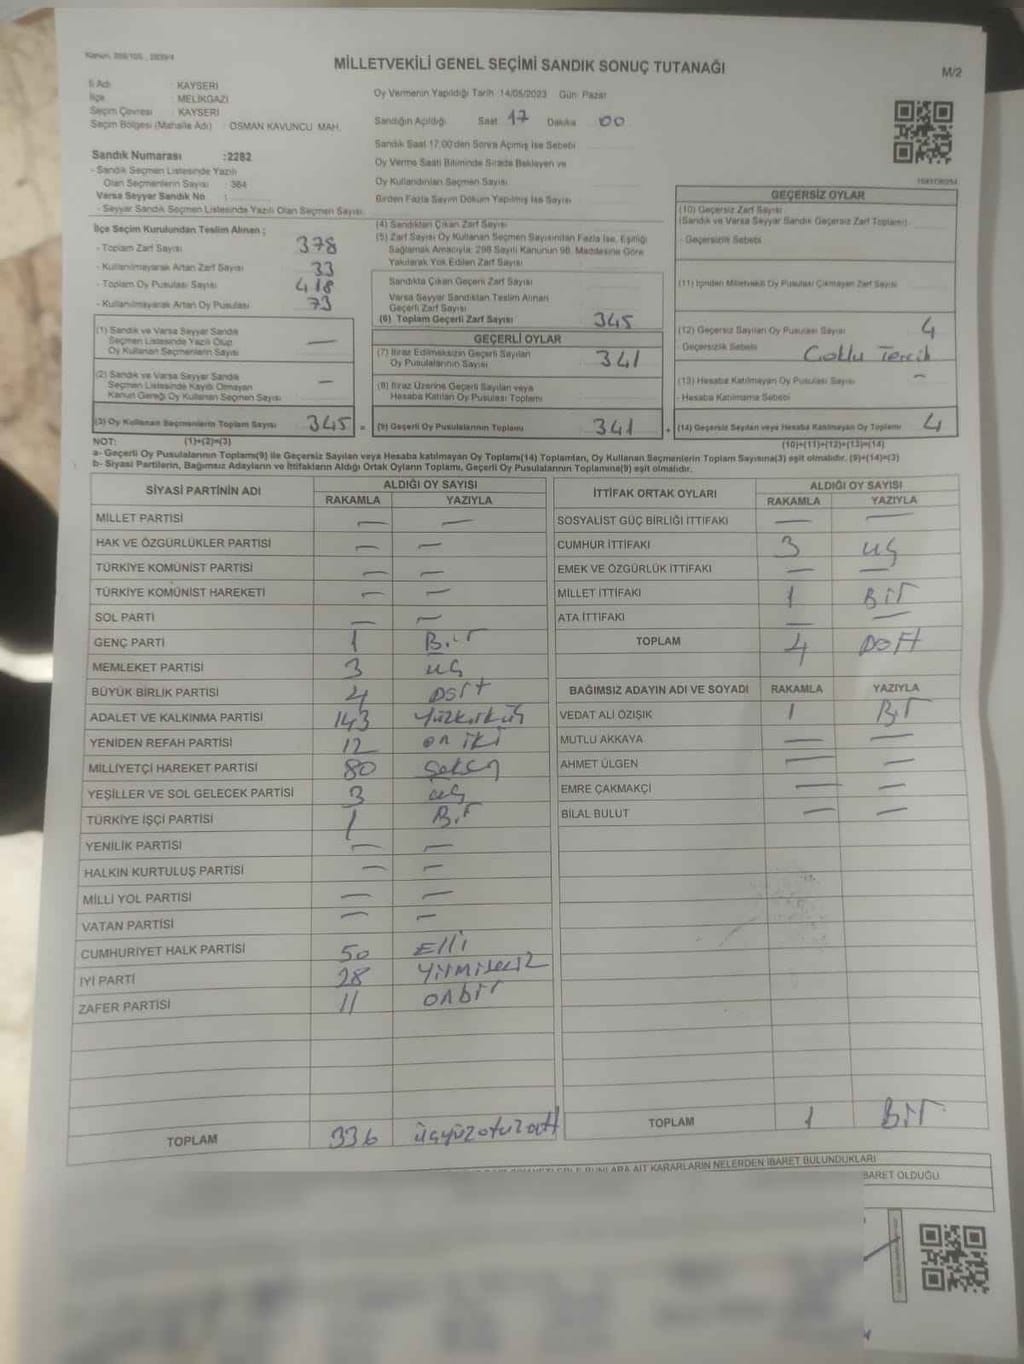 MİLLETVEKİLİ GENEL SEÇİMİ SANDIK SONUÇ TUTANAĞI
M/2
İl Adı : KAYSERİ
İlçe : MELİKGAZİ
Seçim Çevresi : KAYSERİ
Seçim Bölgesi (Mahalle Adı) : OSMAN KAVUNCU MAH.
Oy Vermenin Yapıldığı Tarih :14/05/2023 Gün: Pazar
Sandığın Açıldığı Saat 17 Dakika 00
Sandık Saat 17.00'den Sonra Açılmış İse Sebebi
Oy Verme Saati Bitiminde Sırada Bekleyen ve
Oy Kullandırılan Seçmen Sayısı
Birden Fazla Sayım Döküm Yapılmış İse Sayısı
Sandık Numarası :2282
- Sandık Seçmen Listesinde Yazılı
Olan Seçmenlerin Sayısı : 364
Varsa Seyyar Sandık No :
- Seyyar Sandık Seçmen Listesinde Yazılı Olan Seçmen Sayısı
İlçe Seçim Kurulundan Teslim Alınan ;
- Toplam Zarf Sayısı 378
- Kullanılmayarak Artan Zarf Sayısı 33
- Toplam Oy Pusulası Sayısı 418
- Kullanılmayarak Artan Oy Pusulası 73
(1) Sandık ve Varsa Seyyar Sandık
Seçmen Listesinde Yazılı Olup
Oy Kullanan Seçmenlerin Sayısı —
(2) Sandık ve Varsa Seyyar Sandık
Seçmen Listesinde Kayıtlı Olmayan
Kanun Gereği Oy Kullanan Seçmen Sayısı —
(3) Oy Kullanan Seçmenlerin Toplam Sayısı 345 =
(4) Sandıktan Çıkan Zarf Sayısı
(5) Zarf Sayısı Oy Kullanan Seçmen Sayısından Fazla İse, Eşitliği
Sağlamak Amacıyla; 298 Sayılı Kanunun 98. Maddesine Göre
Yakılarak Yok Edilen Zarf Sayısı
Sandıkta Çıkan Geçerli Zarf Sayısı
Varsa Seyyar Sandıktan Teslim Alınan
Geçerli Zarf Sayısı
(6) Toplam Geçerli Zarf Sayısı 345
GEÇERLİ OYLAR
(7) İtiraz Edilmeksizin Geçerli Sayılan
Oy Pusulalarının Sayısı 341
(8) İtiraz Üzerine Geçerli Sayılan veya
Hesaba Katılan Oy Pusulası Toplamı
(9) Geçerli Oy Pusulalarının Toplamı 341 +
GEÇERSİZ OYLAR
(10) Geçersiz Zarf Sayısı
(Sandık ve Varsa Seyyar Sandık Geçersiz Zarf Toplamı)
- Geçersizlik Sebebi
(11) İçinden Milletvekili Oy Pusulası Çıkmayan Zarf Sayısı
(12) Geçersiz Sayılan Oy Pusulası Sayısı 4
- Geçersizlik Sebebi Çoklu Tercih
(13) Hesaba Katılmayan Oy Pusulası Sayısı —
- Hesaba Katılmama Sebebi
(14) Geçersiz Sayılan veya Hesaba Katılmayan Oy Toplamı 4
NOT: (1)+(2)=(3) (10)+(11)+(12)+(13)=(14)
a- Geçerli Oy Pusulalarının Toplamı(9) ile Geçersiz Sayılan veya Hesaba katılmayan Oy Toplamı(14) Toplamları, Oy Kullanan Seçmenlerin Toplam Sayısına(3) eşit olmalıdır. (9)+(14)=(3)
b- Siyasi Partilerin, Bağımsız Adayların ve İttifakların Aldığı Ortak Oyların Toplamı, Geçerli Oy Pusulalarının Toplamına(9) eşit olmalıdır.
SİYASİ PARTİNİN ADI ALDIĞI OY SAYISI
RAKAMLA YAZIYLA
MİLLET PARTİSİ — —
HAK VE ÖZGÜRLÜKLER PARTİSİ — —
TÜRKİYE KOMÜNİST PARTİSİ — —
TÜRKİYE KOMÜNİST HAREKETİ — —
SOL PARTİ — —
GENÇ PARTİ 1 Bir
MEMLEKET PARTİSİ 3 üç
BÜYÜK BİRLİK PARTİSİ 4 Dört
ADALET VE KALKINMA PARTİSİ 143 Yüzkırküç
YENİDEN REFAH PARTİSİ 12 on iki
MİLLİYETÇİ HAREKET PARTİSİ 80 Seksen
YEŞİLLER VE SOL GELECEK PARTİSİ 3 üç
TÜRKİYE İŞÇİ PARTİSİ 1 Bir
YENİLİK PARTİSİ — —
HALKIN KURTULUŞ PARTİSİ — —
MİLLİ YOL PARTİSİ — —
VATAN PARTİSİ — —
CUMHURİYET HALK PARTİSİ 50 Elli
İYİ PARTİ 28 Yirmisekiz
ZAFER PARTİSİ 11 onbir
TOPLAM 336 üçyüzotuzaltı
İTTİFAK ORTAK OYLARI ALDIĞI OY SAYISI
RAKAMLA YAZIYLA
SOSYALİST GÜÇ BİRLİĞİ İTTİFAKI — —
CUMHUR İTTİFAKI 3 üç
EMEK VE ÖZGÜRLÜK İTTİFAKI — —
MİLLET İTTİFAKI 1 Bir
ATA İTTİFAKI — —
TOPLAM 4 Dört
BAĞIMSIZ ADAYIN ADI VE SOYADI RAKAMLA YAZIYLA
VEDAT ALİ ÖZIŞIK 1 Bir
MUTLU AKKAYA — —
AHMET ÜLGEN — —
EMRE ÇAKMAKÇİ — —
BİLAL BULUT — —
TOPLAM 1 Bir
BUNLARA AİT KARARLARIN NELERDEN İBARET BULUNDUKLARI
BARET OLDUĞU